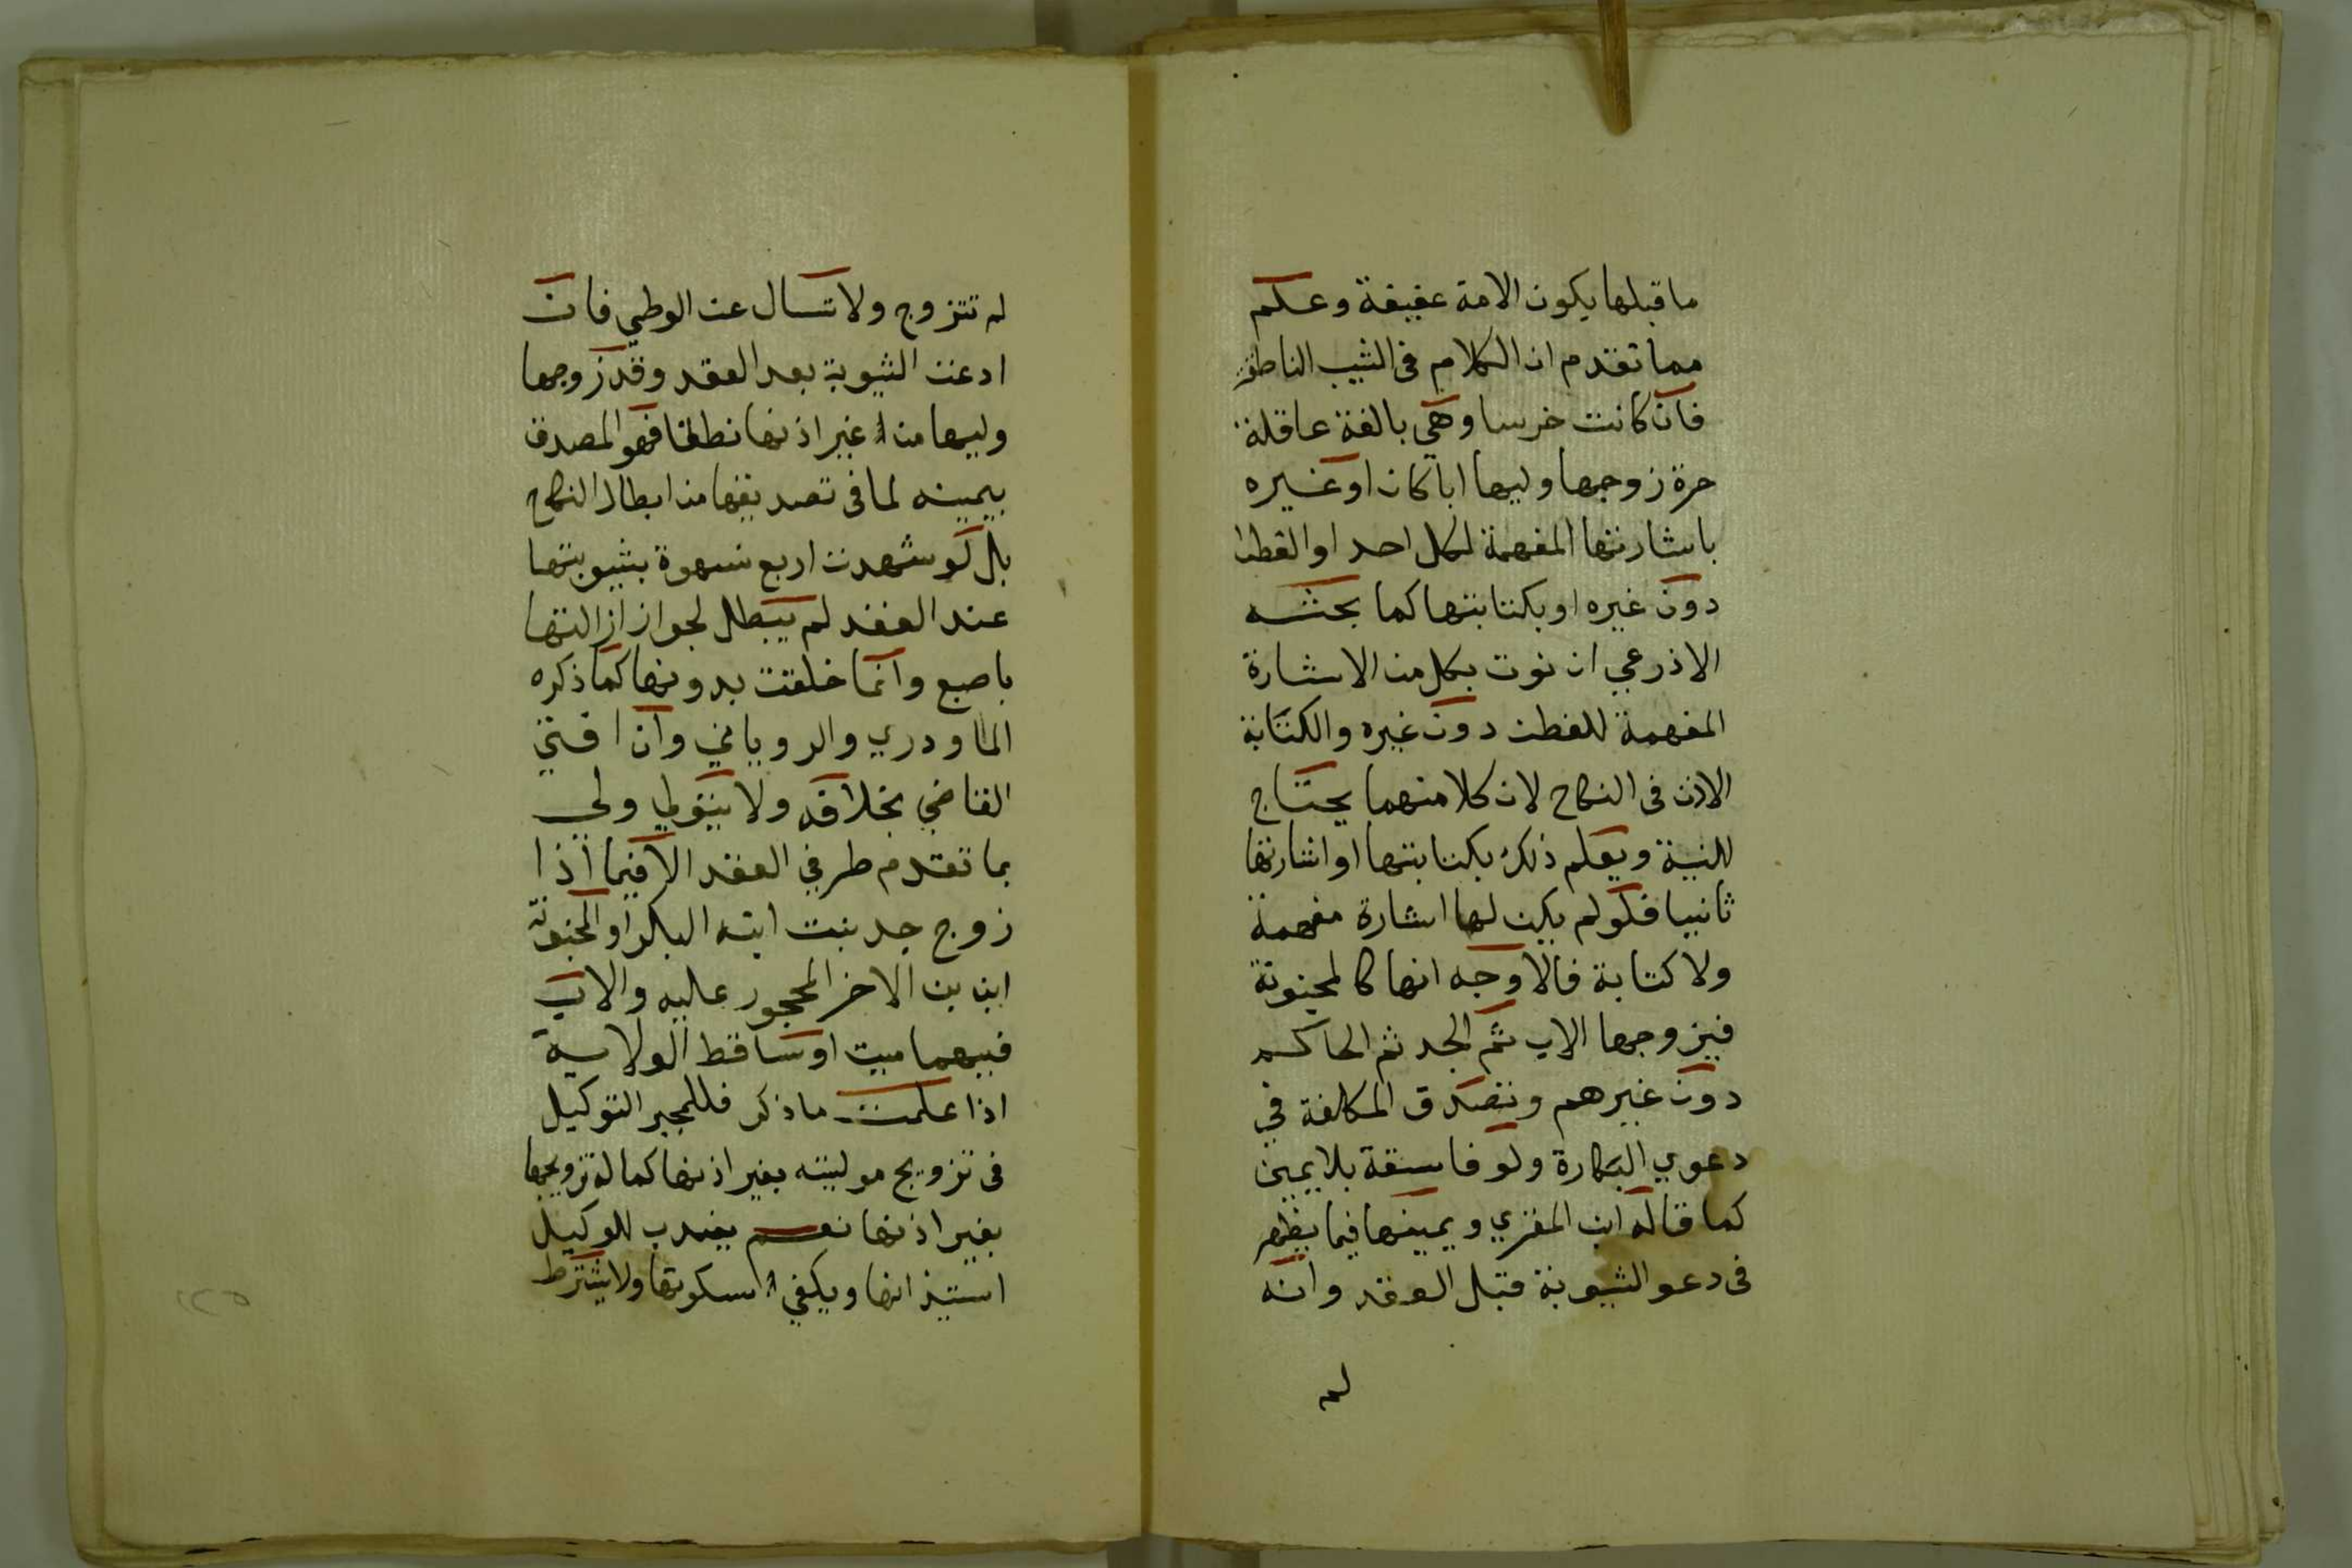 ما قبلها يكون الامة عفيفة وعلم
مما تقدم ان الكلام فى الثيب الناطقة
فان كانت خرسا وهي بالغة عاقلة
حرة زوجها وليها ابا كان او غيره
باشارتها المفهمة لكل احد او الفطن
دون غيره او بكتابتها كما بحثه
الاذرعي ان نوت بكل من الاشارة
المفهمة للفطن دون غيره والكتابة
الاذن فى النكاح لان كلا منهما يحتاج
للنية ويعلم ذلك بكتابتها او اشارتها
ثانيا فلو لم يكن لها اشارة مفهمة
ولا كتابة فالاوجه انها كالمجنونة
فيزوجها الاب ثم الجد ثم الحاكم
دون غيرهم وتصدق المكلفة في
دعوي البكارة ولو فاسقة بلا يمين
كما قاله ابن المقري ويمينها فيما يظهر
فى دعو الثيوبة قبل العقد وانه
لم
لم تتزوج ولا تسال عن الوطي فان
ادعت الثيوبة بعد العقد وقد زوجها
وليها من غير اذنها نطقا فهو المصدق
بيمينه لما فى تصديقها من ابطال النكاح
بل لو شهدت اربع نسوة بثيوبتها
عند العقد لم يبطل لجواز ازالتها
باصبع وانما خلقت بدونها كما ذكره
الماوردي والروياني وان افتى
القاضي بخلافه ولا يتولى ولي
بما تقدم طرفي العقد الا فيما اذا
زوج جد بنت ابنه البكر او المجنونة
ابن بن الاخر المحجور عليه والاب
فيهما ميت او ساقط الولاية
اذا علمت ما ذكر فللمجبر التوكيل
فى تزويج موليته بغير اذنها كما له تزويجها
بغير اذنها نعم يندب للوكيل
استيذانها ويكفي سكوتها ولا يشترط
١٢٥